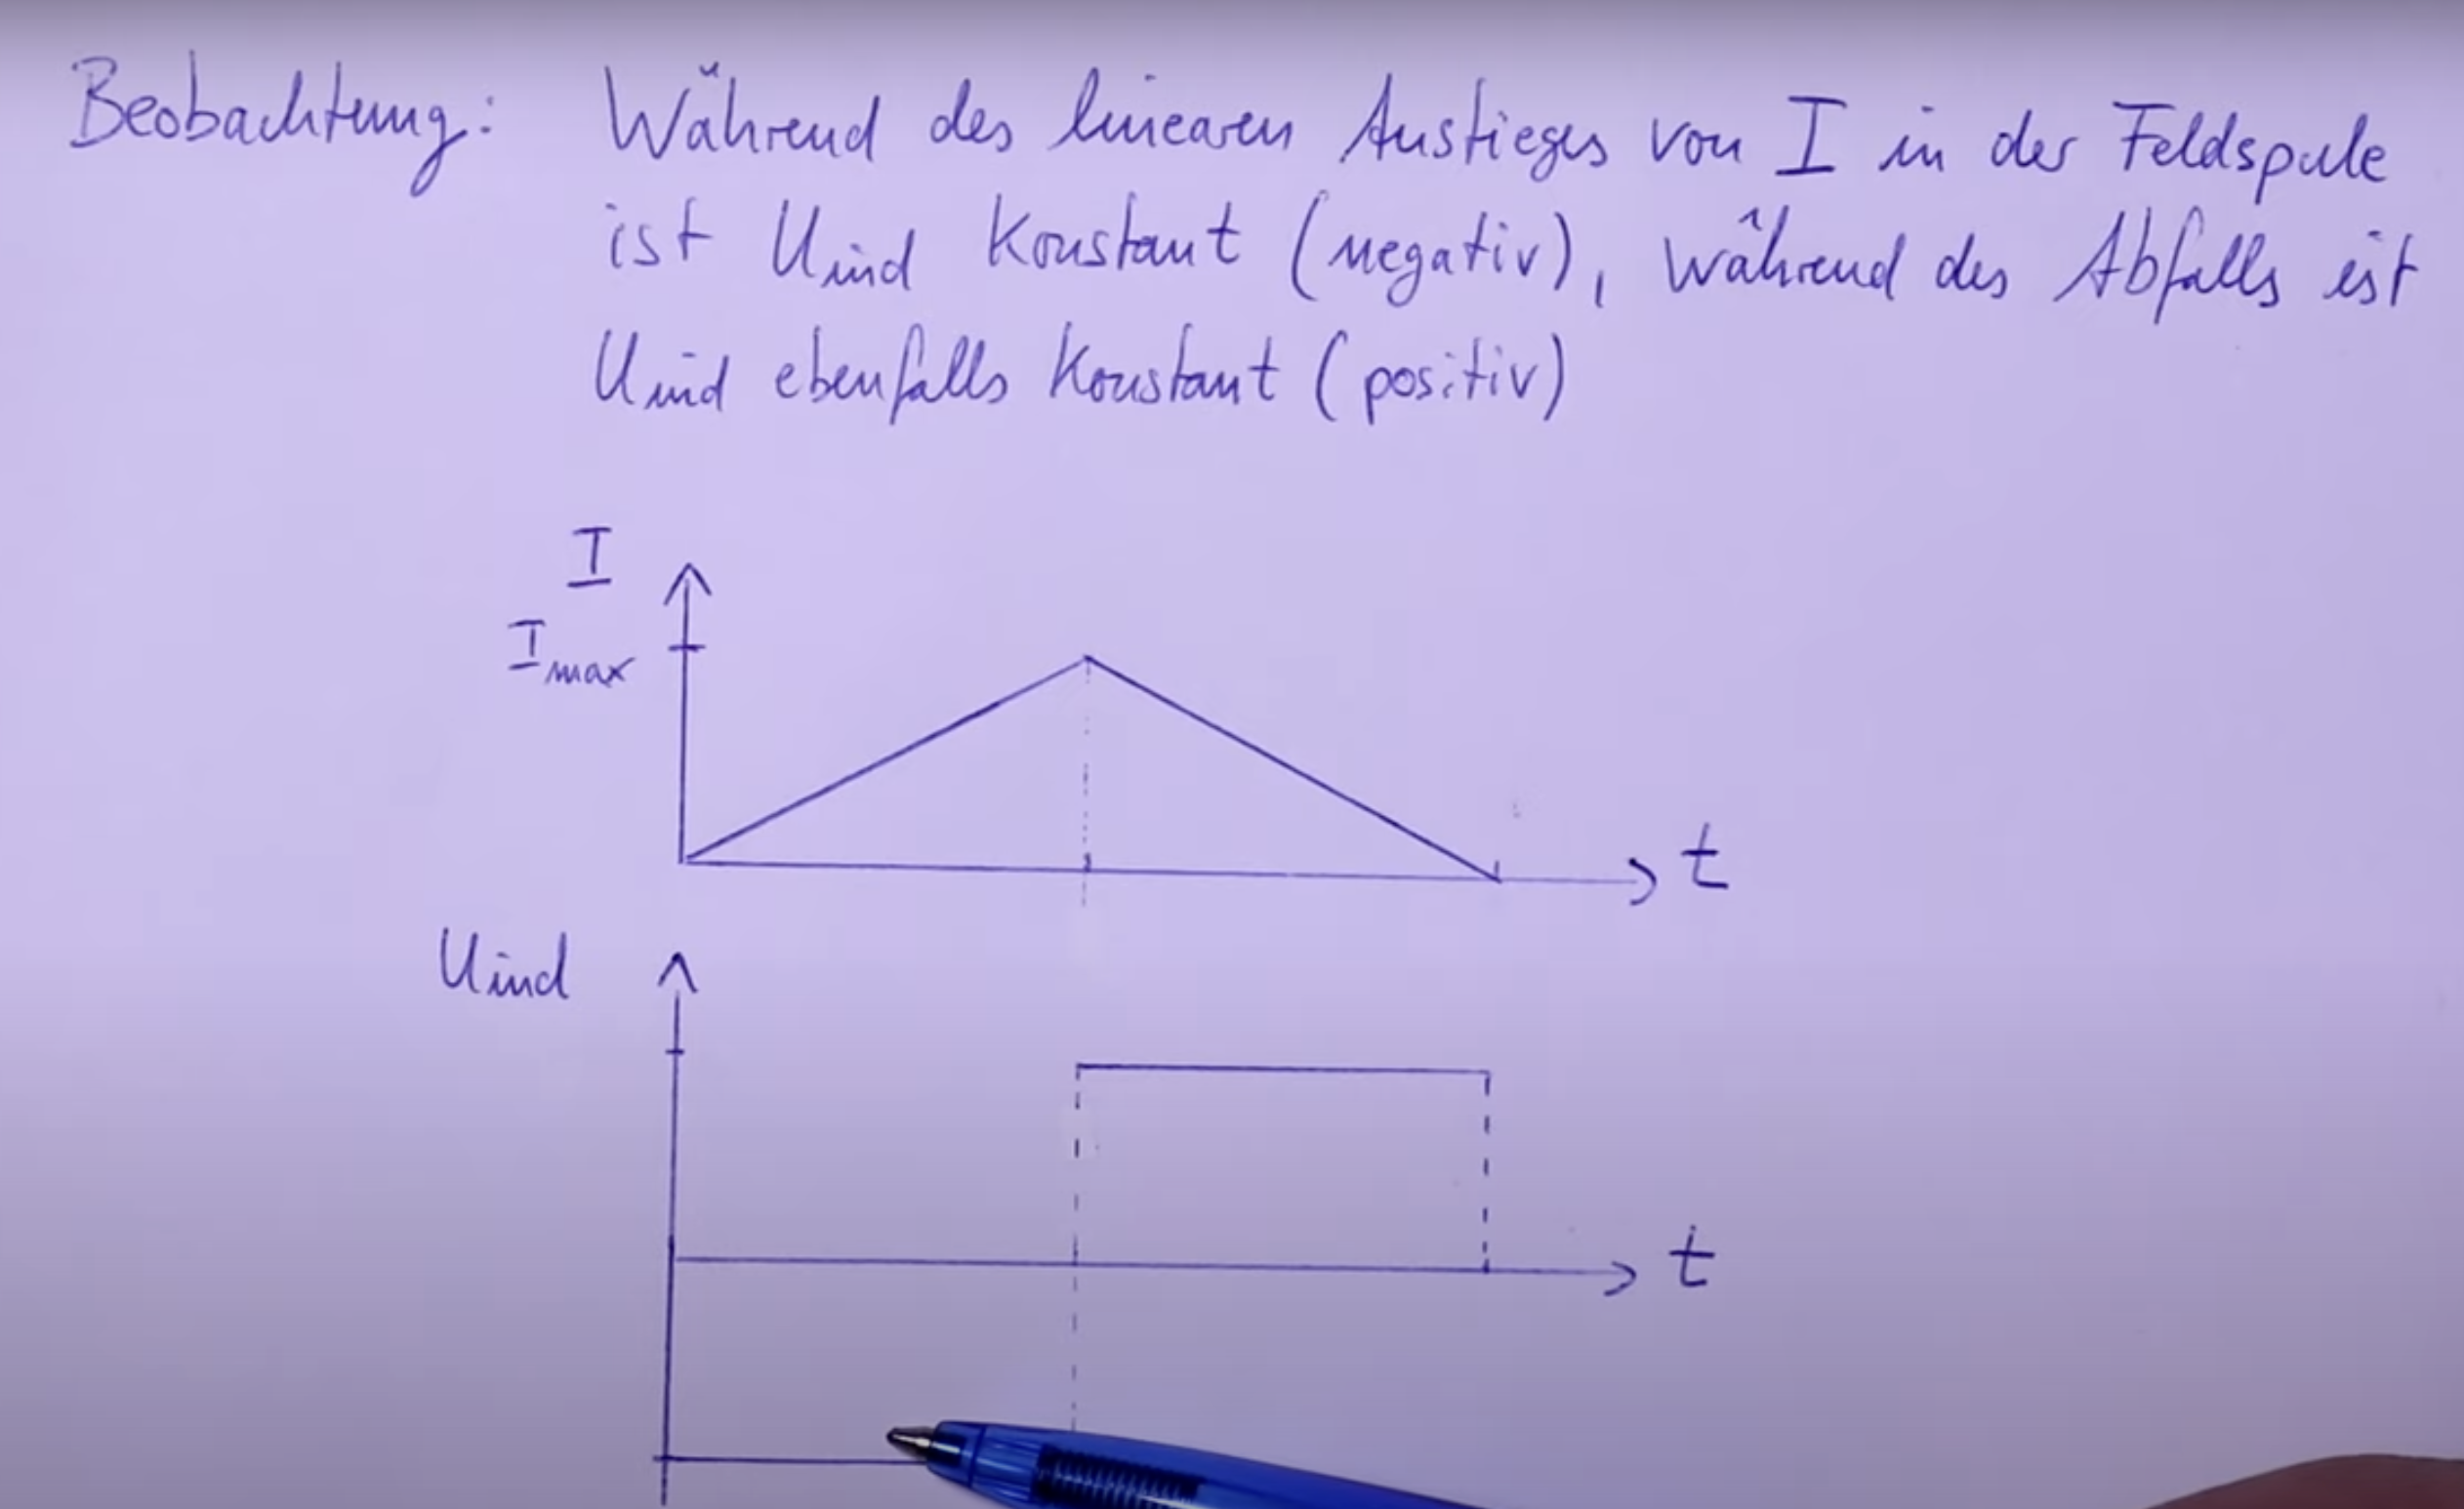 Beobachtung: Während des linearen Anstieges von I in der Feldspule
ist Uind konstant (negativ), während des Abfalls ist
Uind ebenfalls konstant (positiv)
I
Imax
t
Uind
t